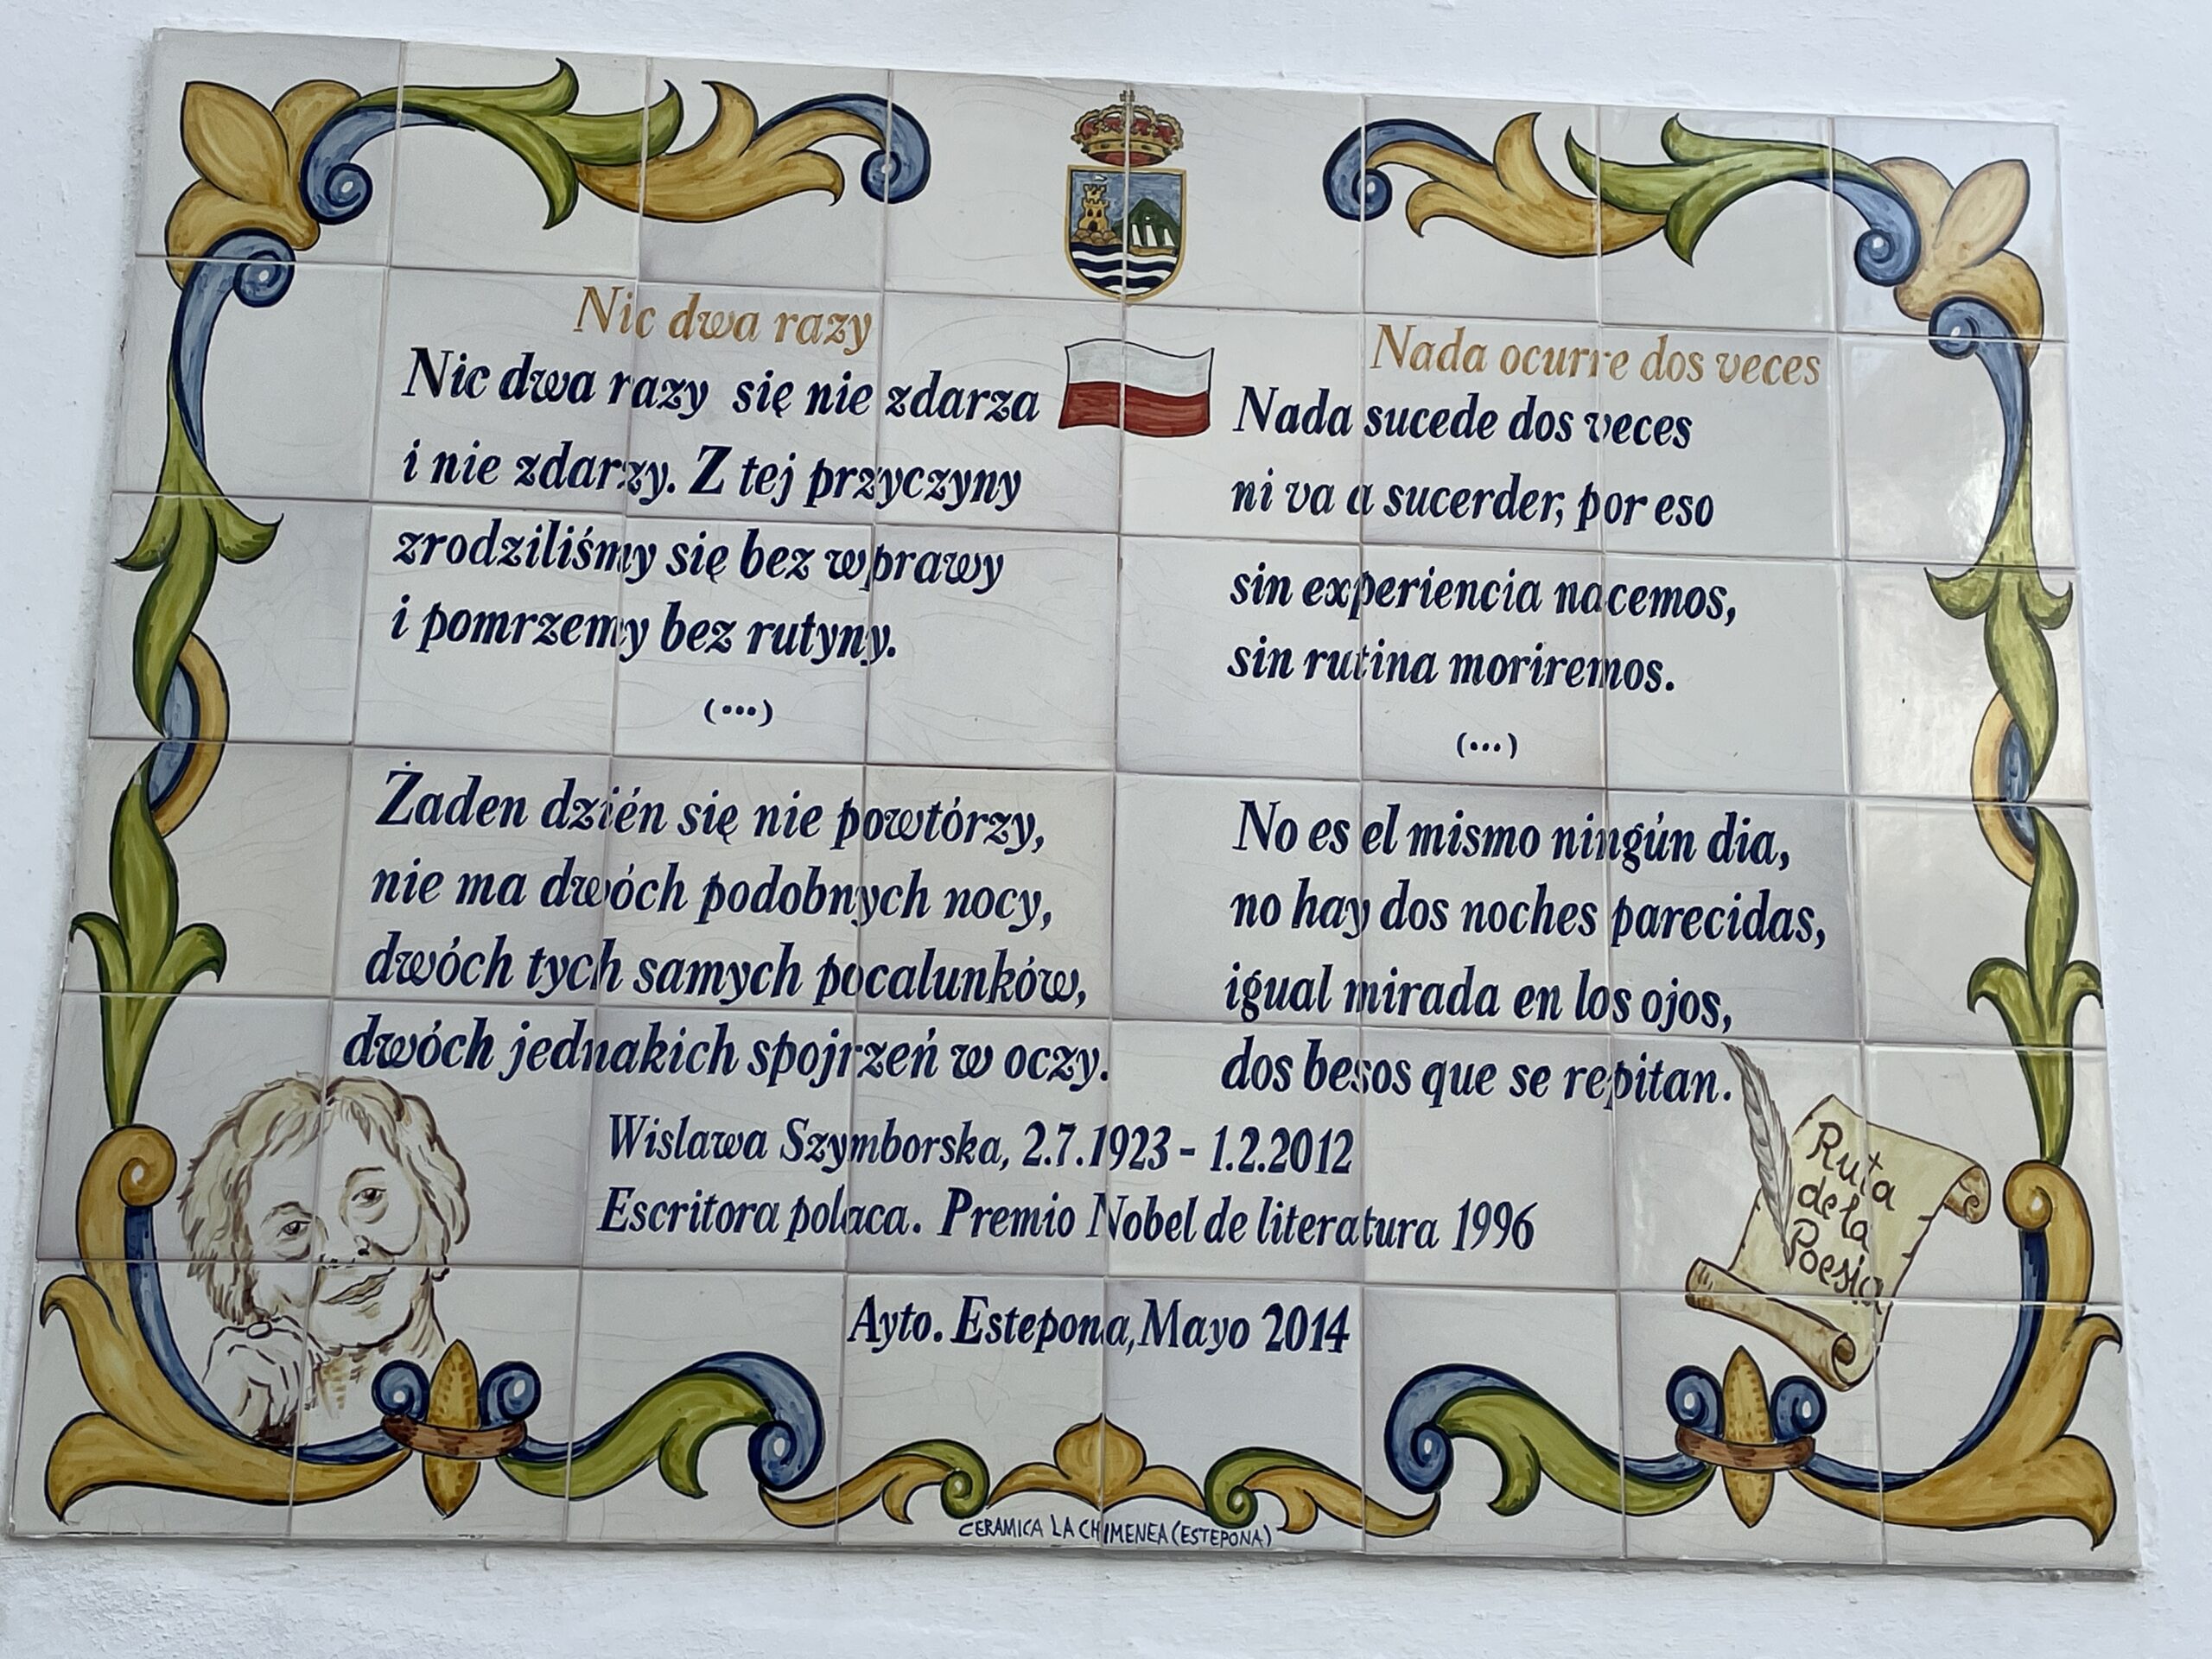 Nic dwa razy
Nic dwa razy się nie zdarza
i nie zdarzy. Z tej przyczyny
zrodziliśmy się bez wprawy
i pomrzemy bez rutyny.
(...)
Żaden dzién się nie powtórzy,
nie ma dwóch podobnych nocy,
dwóch tych samych pocalunków,
dwóch jednakich spojrzeń w oczy.
Nada ocurre dos veces
Nada sucede dos veces
ni va a sucerder, por eso
sin experiencia nacemos,
sin rutina moriremos.
(...)
No es el mismo ningún dia,
no hay dos noches parecidas,
igual mirada en los ojos,
dos besos que se repitan.
Wislawa Szymborska, 2.7.1923 - 1.2.2012
Escritora polaca. Premio Nobel de literatura 1996
Ayto. Estepona, Mayo 2014
Ruta
de la
Poesia
CERAMICA LA CHIMENEA (ESTEPONA)